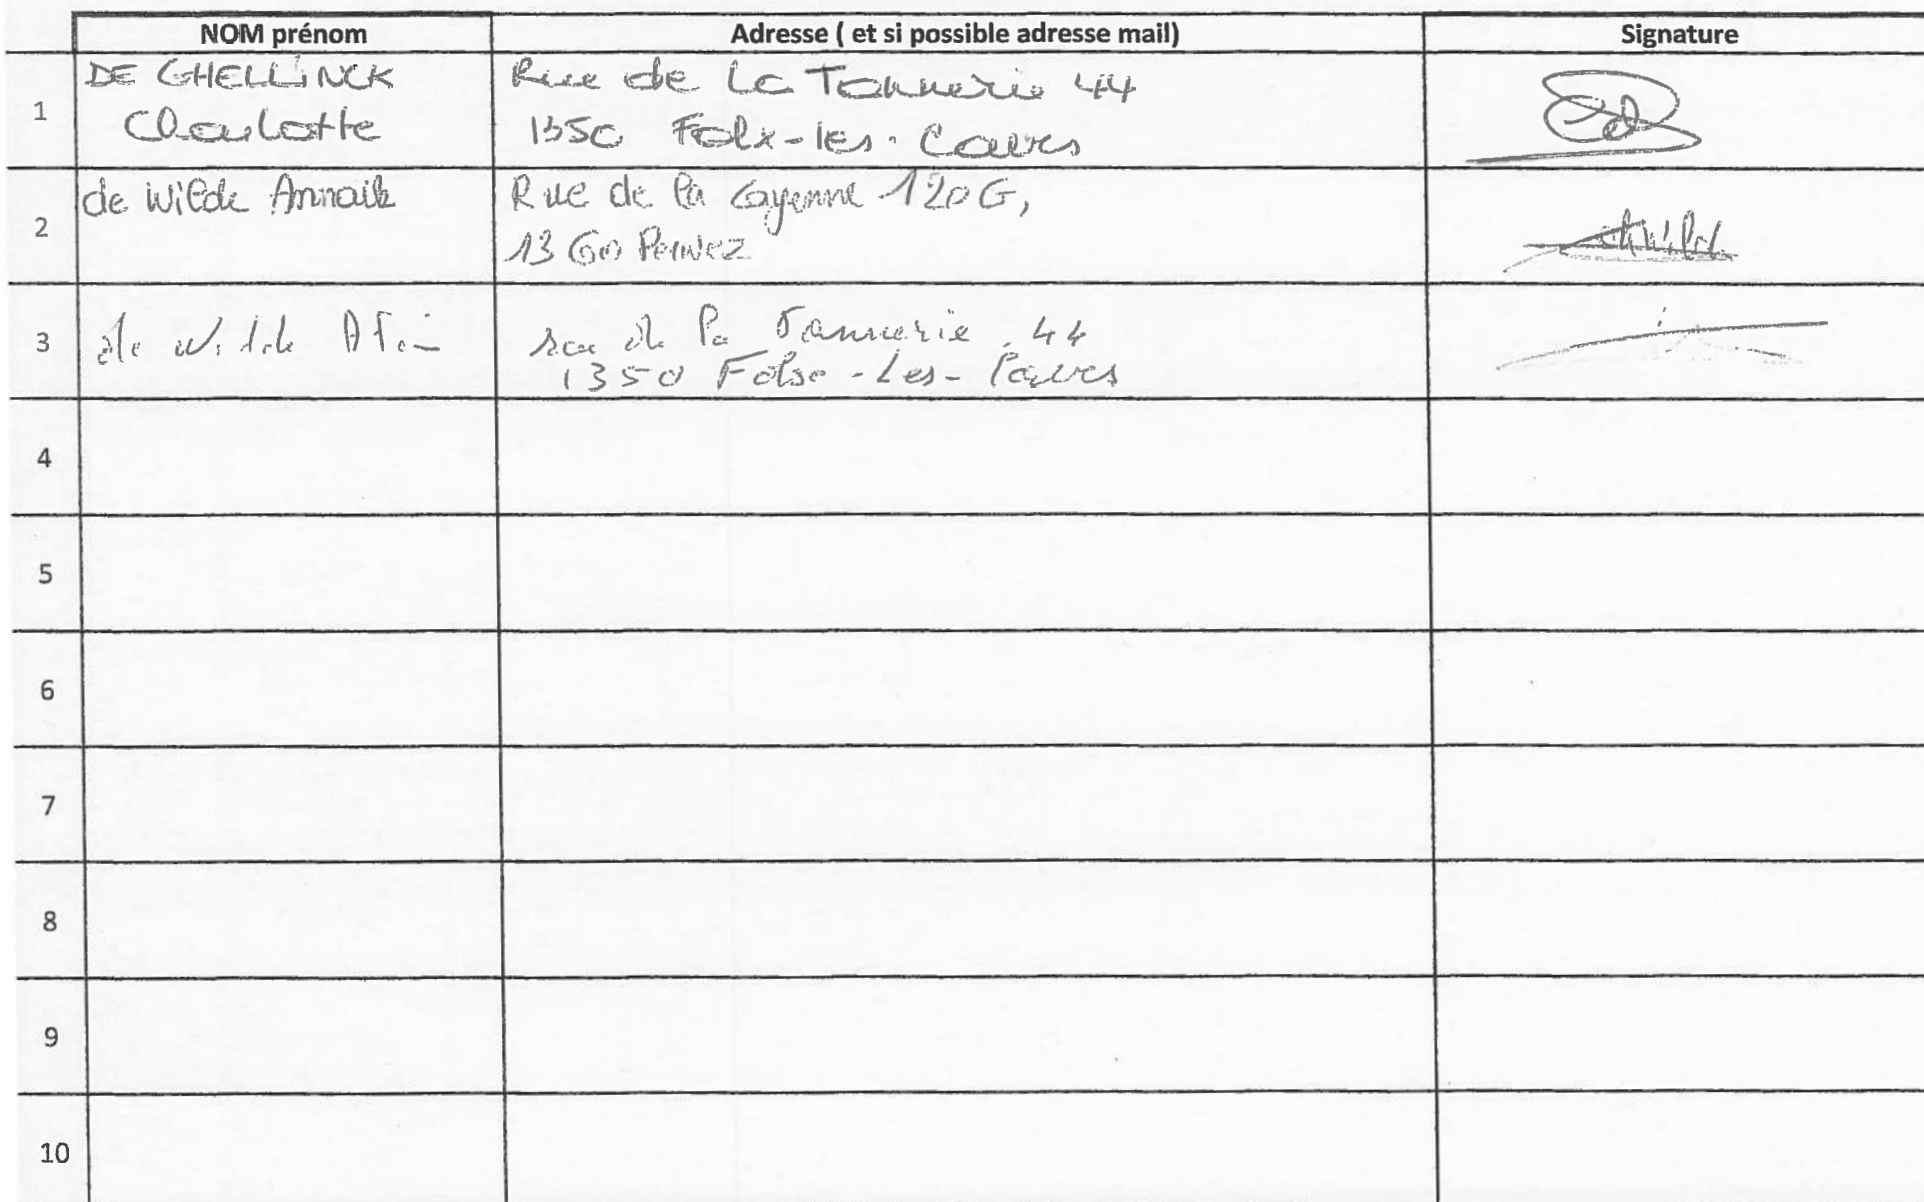 NOM prénom
Adresse ( et si possible adresse mail)
Signature
1
DE GHELLINCK
Charlotte
Rue de La Tannerie 44
1350 Folx-les-Caves
2
de Wilde Annaik
Rue de la Cayenne 120G,
1360 Perwez
3
de Wilde
rue de la Tannerie 44
1350 Folx-Les-Caves
4
5
6
7
8
9
10